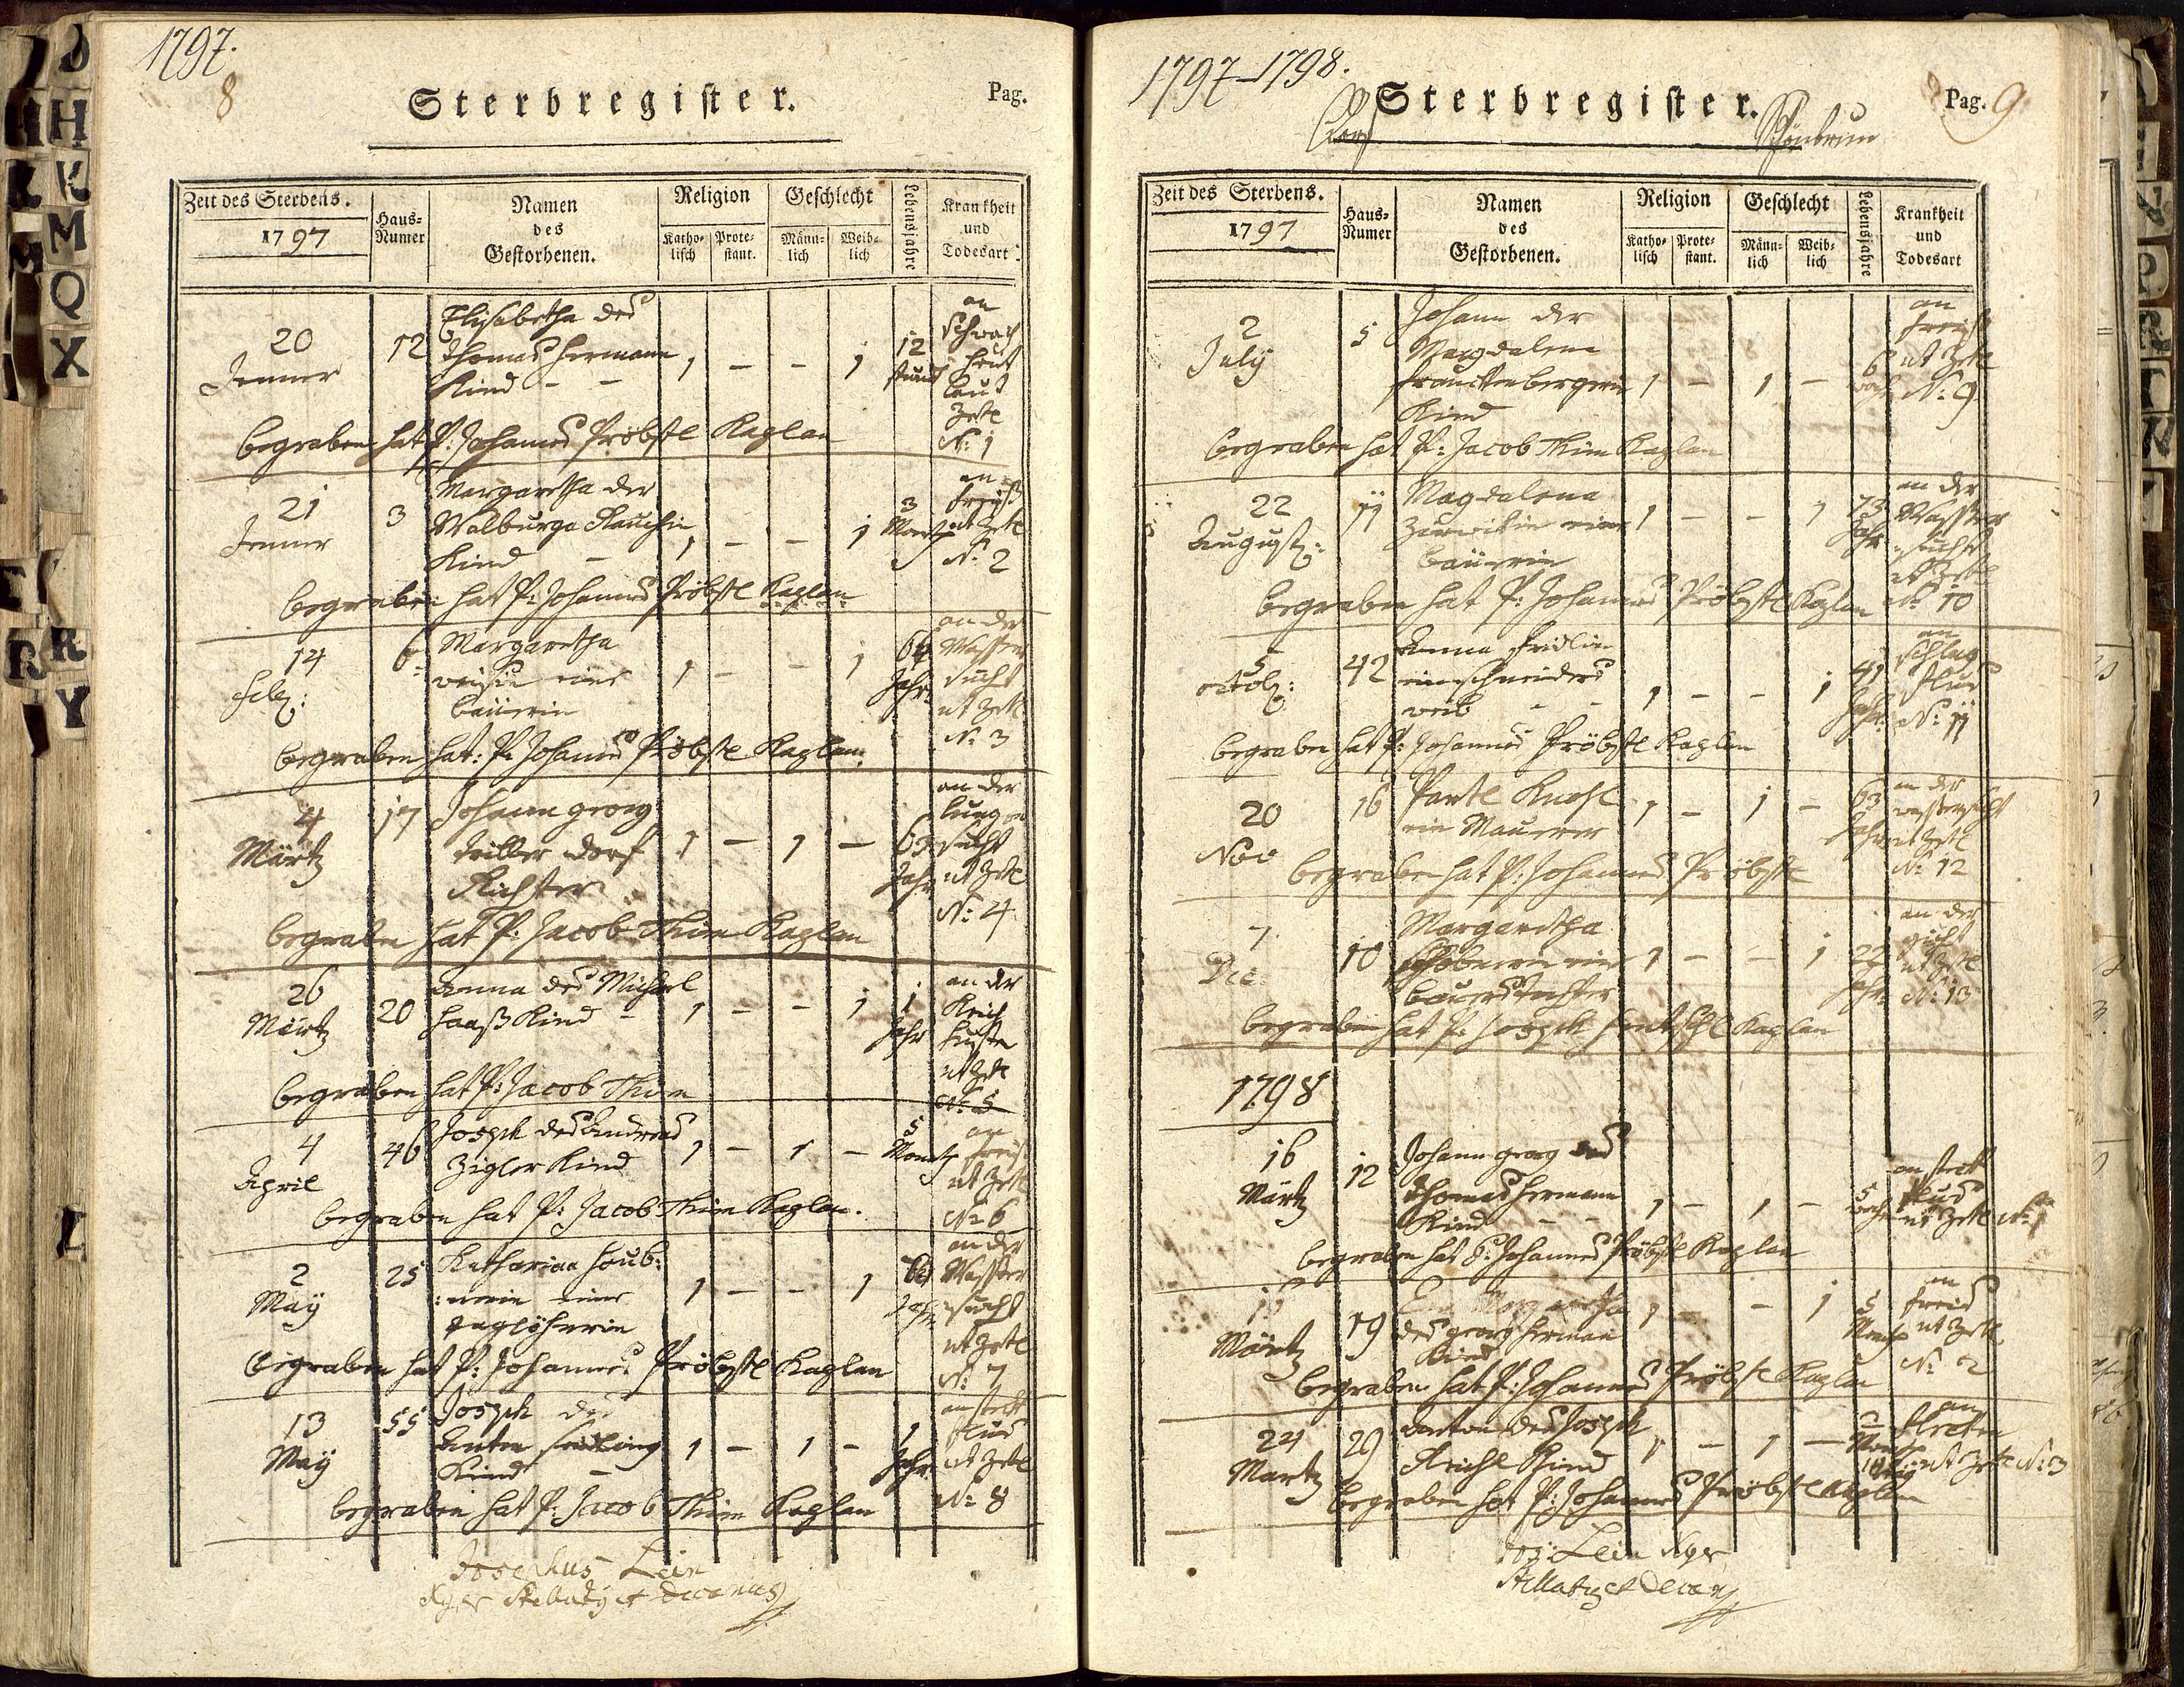 1797.
8
Sterbregister.
Pag.
Zeit des Sterbens.
1797
Haus-
Numer
Namen
des
Gestorbenen.
Religion
Katho-
lisch
Prote-
stant.
Geschlecht
Männ-
lich
Weib-
lich
Lebensjahre
Krankheit
und
Todesart
20
Jenner
12
Elisabetha des
Thomas Hermann
Kind - -
1 - - 1
12
stund
an
schwach
heit
laut
Zetl
N: 1
begraben hat P: Johannes Pröbstl Kaplan
21
Jenner
3
Margaretha der
Walburga
Kind -
1 - - 1
3
Monath
an
ut Zetl
N: 2
begraben hat P: Johannes Pröbstl Kaplan
14
Feb:
6
Margaretha
eine
bäuerin
1 - - 1
64
Jahr
an der
Wasser
sucht
ut Zetl
N: 3
begraben hat: P: Johannes Pröbstl Kaplan
4
Märtz
17
Johann georg
dorf
Richter
1 - 1 -
63
Jahr
an der
lungen
sucht
ut Zetl
N: 4
begraben hat P: Jacob Thim Kaplan
26
Märtz
20
Anna des Michael
Haaß Kind -
1 - - 1
1
Jahr
an der
Keich
huste
ut Zetl
N: 5
begraben hat P: Jacob Thim
4
April
46
Joseph des Andreas
Zigler Kind
1 - 1 -
5
Monath
an
freis
ut Zetl
N: 6
begraben hat P: Jacob Thim Kaplan.
2
May
25
Katharina
eine
taglöhnerin
1 - - 1
Jahr
an der
Wasser
sucht
ut Zetl
N: 7
begraben hat P: Johannes Pröbstl Kaplan
13
May
55
Joseph des
Anton
Kind -
1 - 1 -
1
Jahr
an steck
flus
ut Zetl
N: 8
begraben hat P: Jacob Thim Kaplan
Josephus Lein
et Decanus
1797-1798.
Dorf
Sterbregister.
Schönbrun
Pag. 9
Zeit des Sterbens.
1797
Haus-
Numer
Namen
des
Gestorbenen.
Religion
Katho-
lisch
Prote-
stant.
Geschlecht
Männ-
lich
Weib-
lich
Lebensjahre
Krankheit
und
Todesart
2
July
5
Johann der
Magdalena
Kind
1 - 1 -
6
woch
an
freis
ut Zetl
N: 9
begraben hat P: Jacob Thim Kaplan
22
August:
11
Magdalena
eine
bäuerin
1 - - 1
73
Jahr
an der
Wasser
sucht
ut Zetl
N: 10
begraben hat P: Johannes Pröbstl Kaplan
5
octob:
42
Anna
ein schneiders
weib - -
1 - - 1
41
Jahr
an
schlag
flus
N: 11
begraben hat P: Johannes Pröbstl Kaplan
20
Nov
16
ein Maurer
1 - 1 -
63
Jahr
an der
wassersucht
ut Zetl
N: 12
begraben hat P: Johannes Pröbstl
7
Dec.
10
Margaretha
eine
bauerstochter
1 - - 1
22
Jahr
an der
gicht
ut Zetl
N: 13
begraben hat P: Joseph Kaplan
1798
16
Märtz
12
Johann georg des
Thomas Hermann
Kind - -
1 - 1 -
5
woch
an steck
flus
ut Zetl N: 1
begraben hat P: Johannes Pröbstl Kaplan
Märtz
19
Margaretha
des georg Herman
Kind
1 - - 1
5
Monath
an
freis
ut Zetl
N: 2
begraben hat P: Johannes Pröbstl Kaplan
24
Martz
29
Anton des Joseph
Kind
1 - 1 -
Monath
an
ut Zetl N: 3
begraben hat P: Johannes Pröbstl Kaplan
Jos: Lein
et Decan